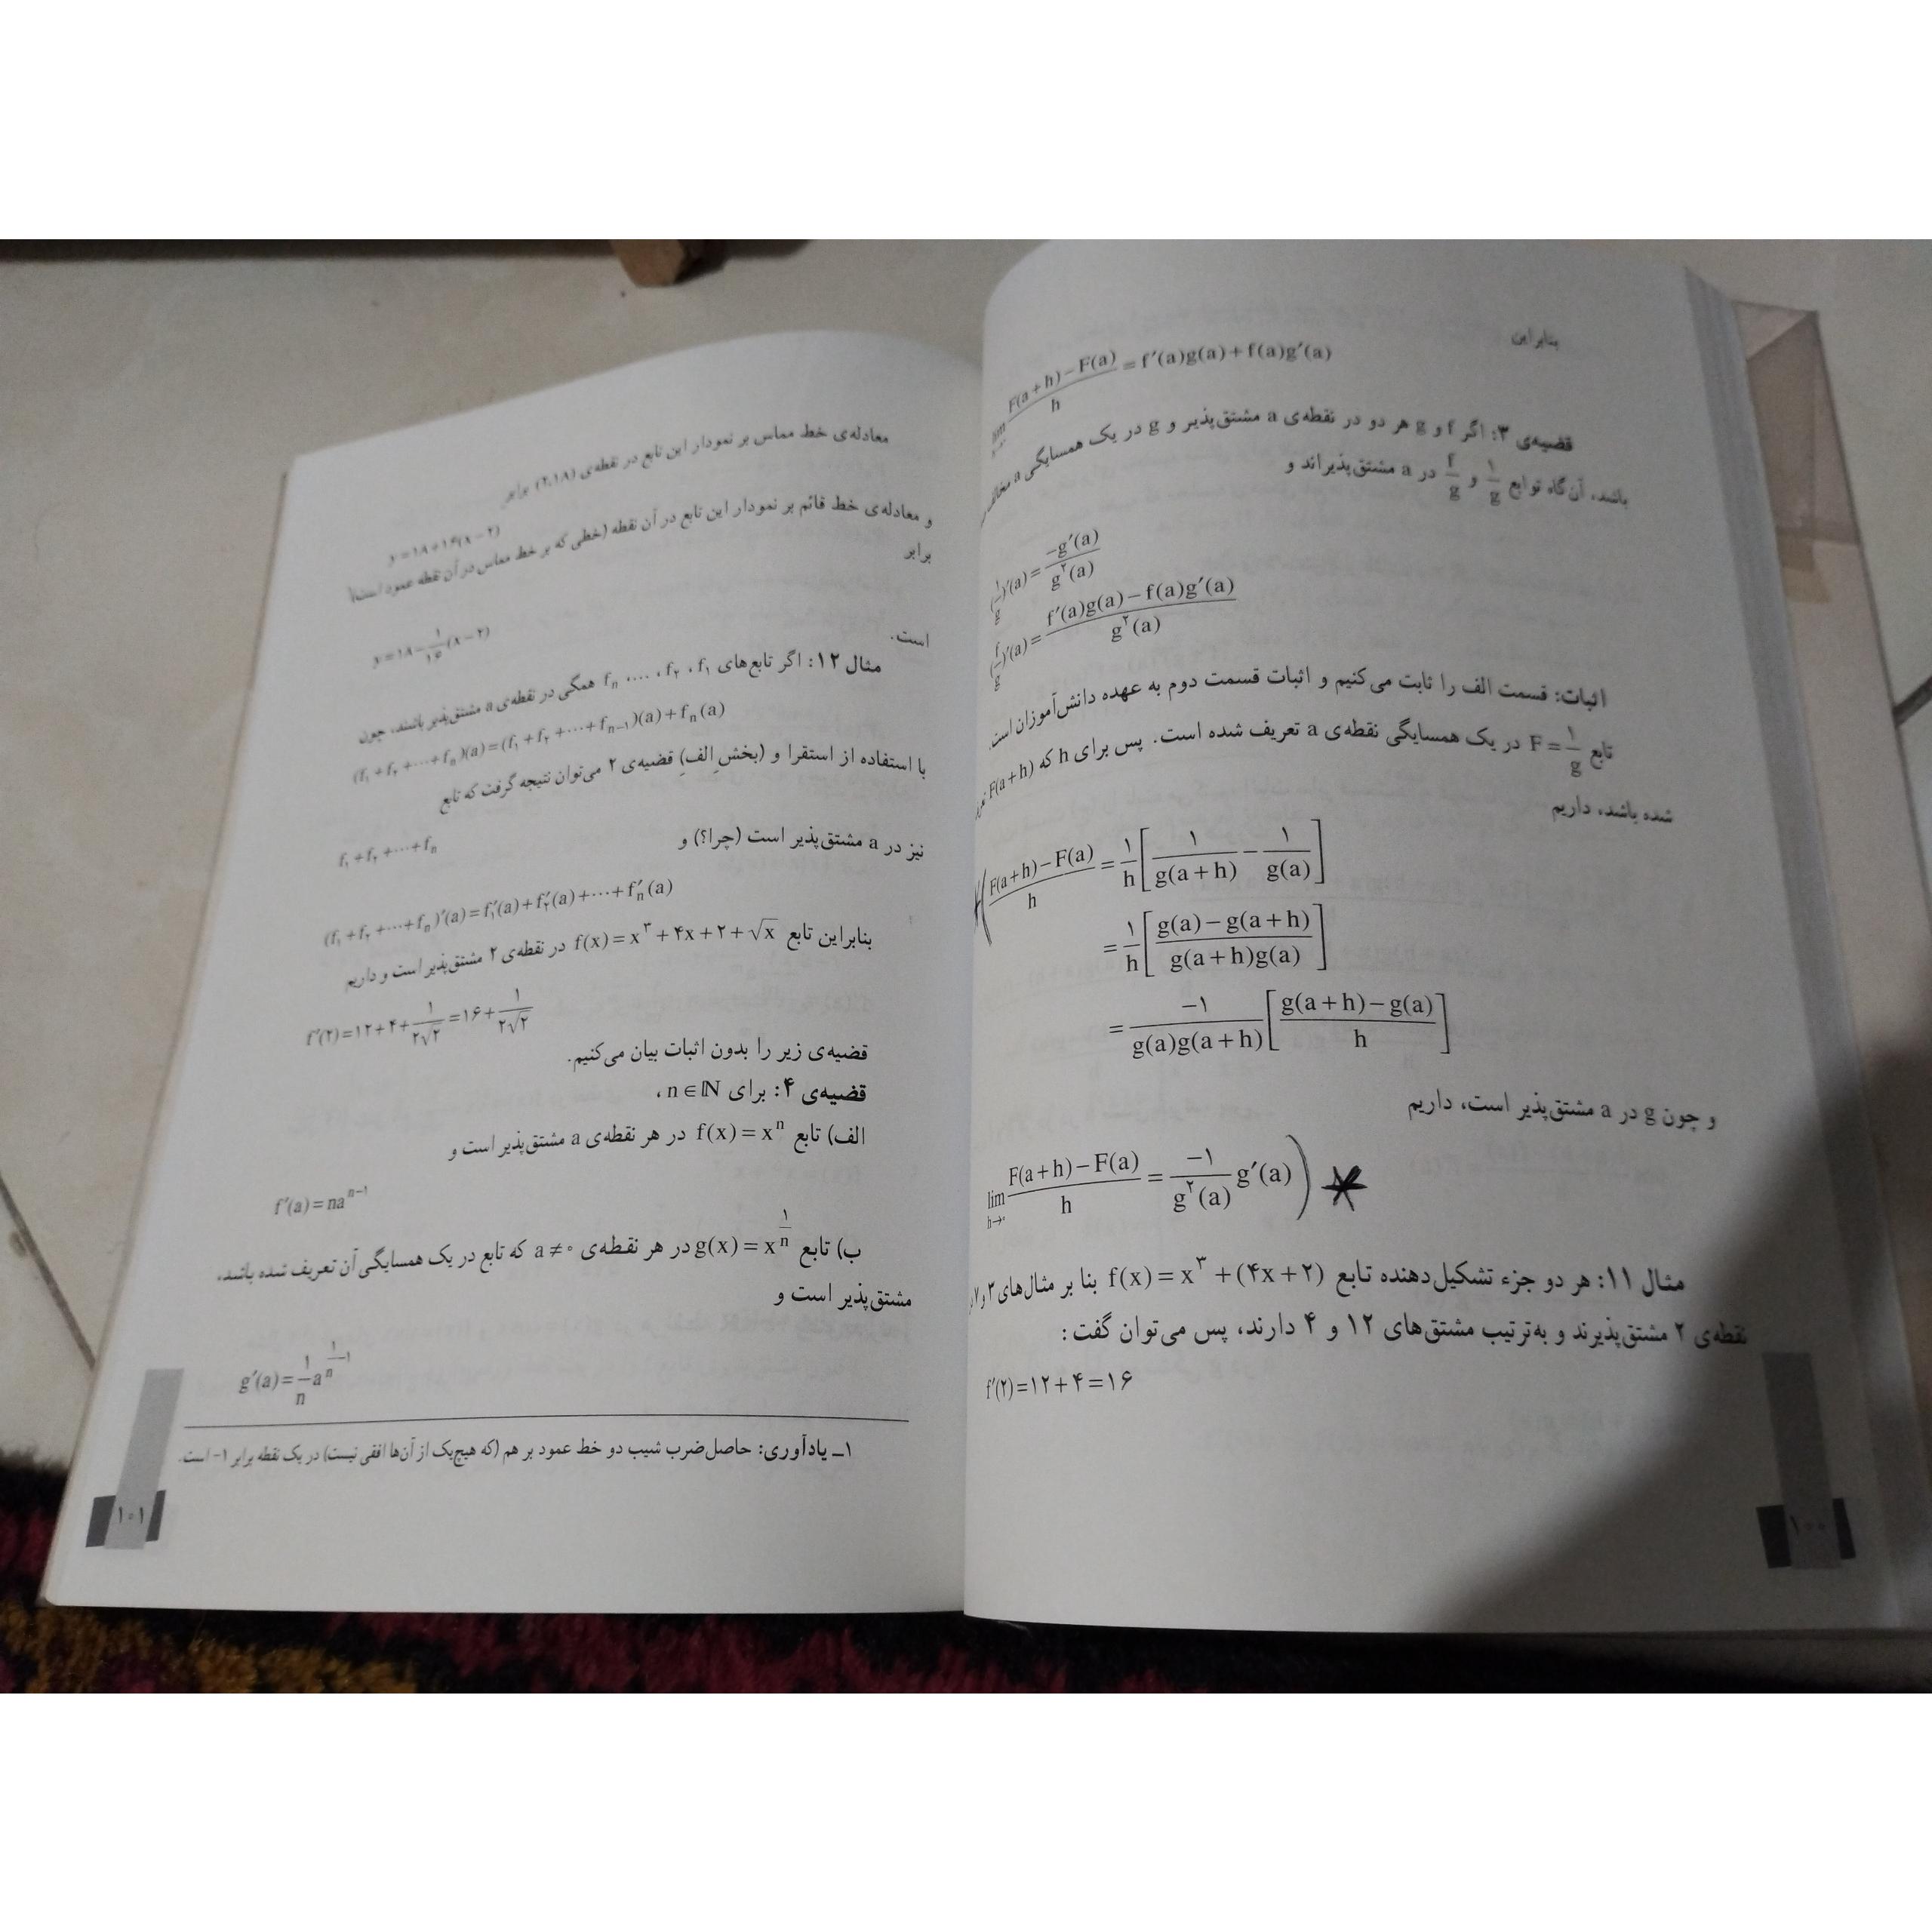 بنابراین
lim F(a+h)−F(a) / h = f′(a)g(a)+f(a)g′(a)
قضیه‌ی ۳: اگر f و g هر دو در نقطه‌ی a مشتق‌پذیر و g در یک همسایگی a مخالف
باشد، آن‌گاه توابع ۱/g و f/g در a مشتق‌پذیراند و
(۱/g)′(a) = −g′(a) / g²(a)
(f/g)′(a) = f′(a)g(a)−f(a)g′(a) / g²(a)
اثبات: قسمت الف را ثابت می‌کنیم و اثبات قسمت دوم به عهده دانش‌آموزان است.
تابع F = ۱/g در یک همسایگی نقطه‌ی a تعریف شده است. پس برای h که F(a+h)
شده باشد، داریم
F(a+h)−F(a) / h = ۱/h [ ۱/g(a+h) − ۱/g(a) ]
= ۱/h [ g(a)−g(a+h) / g(a+h)g(a) ]
= −۱ / g(a)g(a+h) [ g(a+h)−g(a) / h ]
و چون g در a مشتق‌پذیر است، داریم
lim h→۰ F(a+h)−F(a) / h = −۱/g²(a) g′(a) )
مثال ۱۱: هر دو جزء تشکیل‌دهنده تابع f(x) = x³ + (۴x+۲) بنا بر مثال‌های ۳ و ۷
نقطه‌ی ۲ مشتق‌پذیرند و به‌ترتیب مشتق‌های ۱۲ و ۴ دارند، پس می‌توان گفت:
f′(۲) = ۱۲+۴ = ۱۶
۱۰۰
معادله‌ی خط مماس بر نمودار این تابع در نقطه‌ی (۲،۱۸) برابر
y = ۱۸+۱۶(x−۲)
و معادله‌ی خط قائم بر نمودار این تابع در آن نقطه (خطی که بر خط مماس در آن نقطه عمود است)
برابر
y = ۱۸ − ۱/۱۶ (x−۲)
است.
مثال ۱۲: اگر تابع‌های f₁، f₂، ....، fₙ همگی در نقطه‌ی a مشتق‌پذیر باشند، چون
(f₁+f₂+⋯+fₙ)(a) = (f₁+f₂+⋯+fₙ₋₁)(a)+fₙ(a)
با استفاده از استقرا و (بخشِ الف) قضیه‌ی ۲ می‌توان نتیجه گرفت که تابع
f₁+f₂+⋯+fₙ
نیز در a مشتق‌پذیر است (چرا؟) و
(f₁+f₂+⋯+fₙ)′(a) = f₁′(a)+f₂′(a)+⋯+fₙ′(a)
بنابراین تابع f(x) = x³+۴x+۲+√x در نقطه‌ی ۲ مشتق‌پذیر است و داریم
f′(۲) = ۱۲+۴+ ۱/۲√۲ = ۱۶+ ۱/۲√۲
قضیه‌ی زیر را بدون اثبات بیان می‌کنیم.
قضیه‌ی ۴: برای n∈ℕ،
الف) تابع f(x) = xⁿ در هر نقطه‌ی a مشتق‌پذیر است و
f′(a) = naⁿ⁻¹
ب) تابع g(x) = x^(۱/n) در هر نقطه‌ی a≠۰ که تابع در یک همسایگی آن تعریف شده باشد،
مشتق‌پذیر است و
g′(a) = ۱/n a^(۱/n −۱)
۱ـ یادآوری: حاصل‌ضرب شیب دو خط عمود بر هم (که هیچ‌یک از آن‌ها افقی نیست) در یک نقطه برابر ۱− است.
۱۰۱